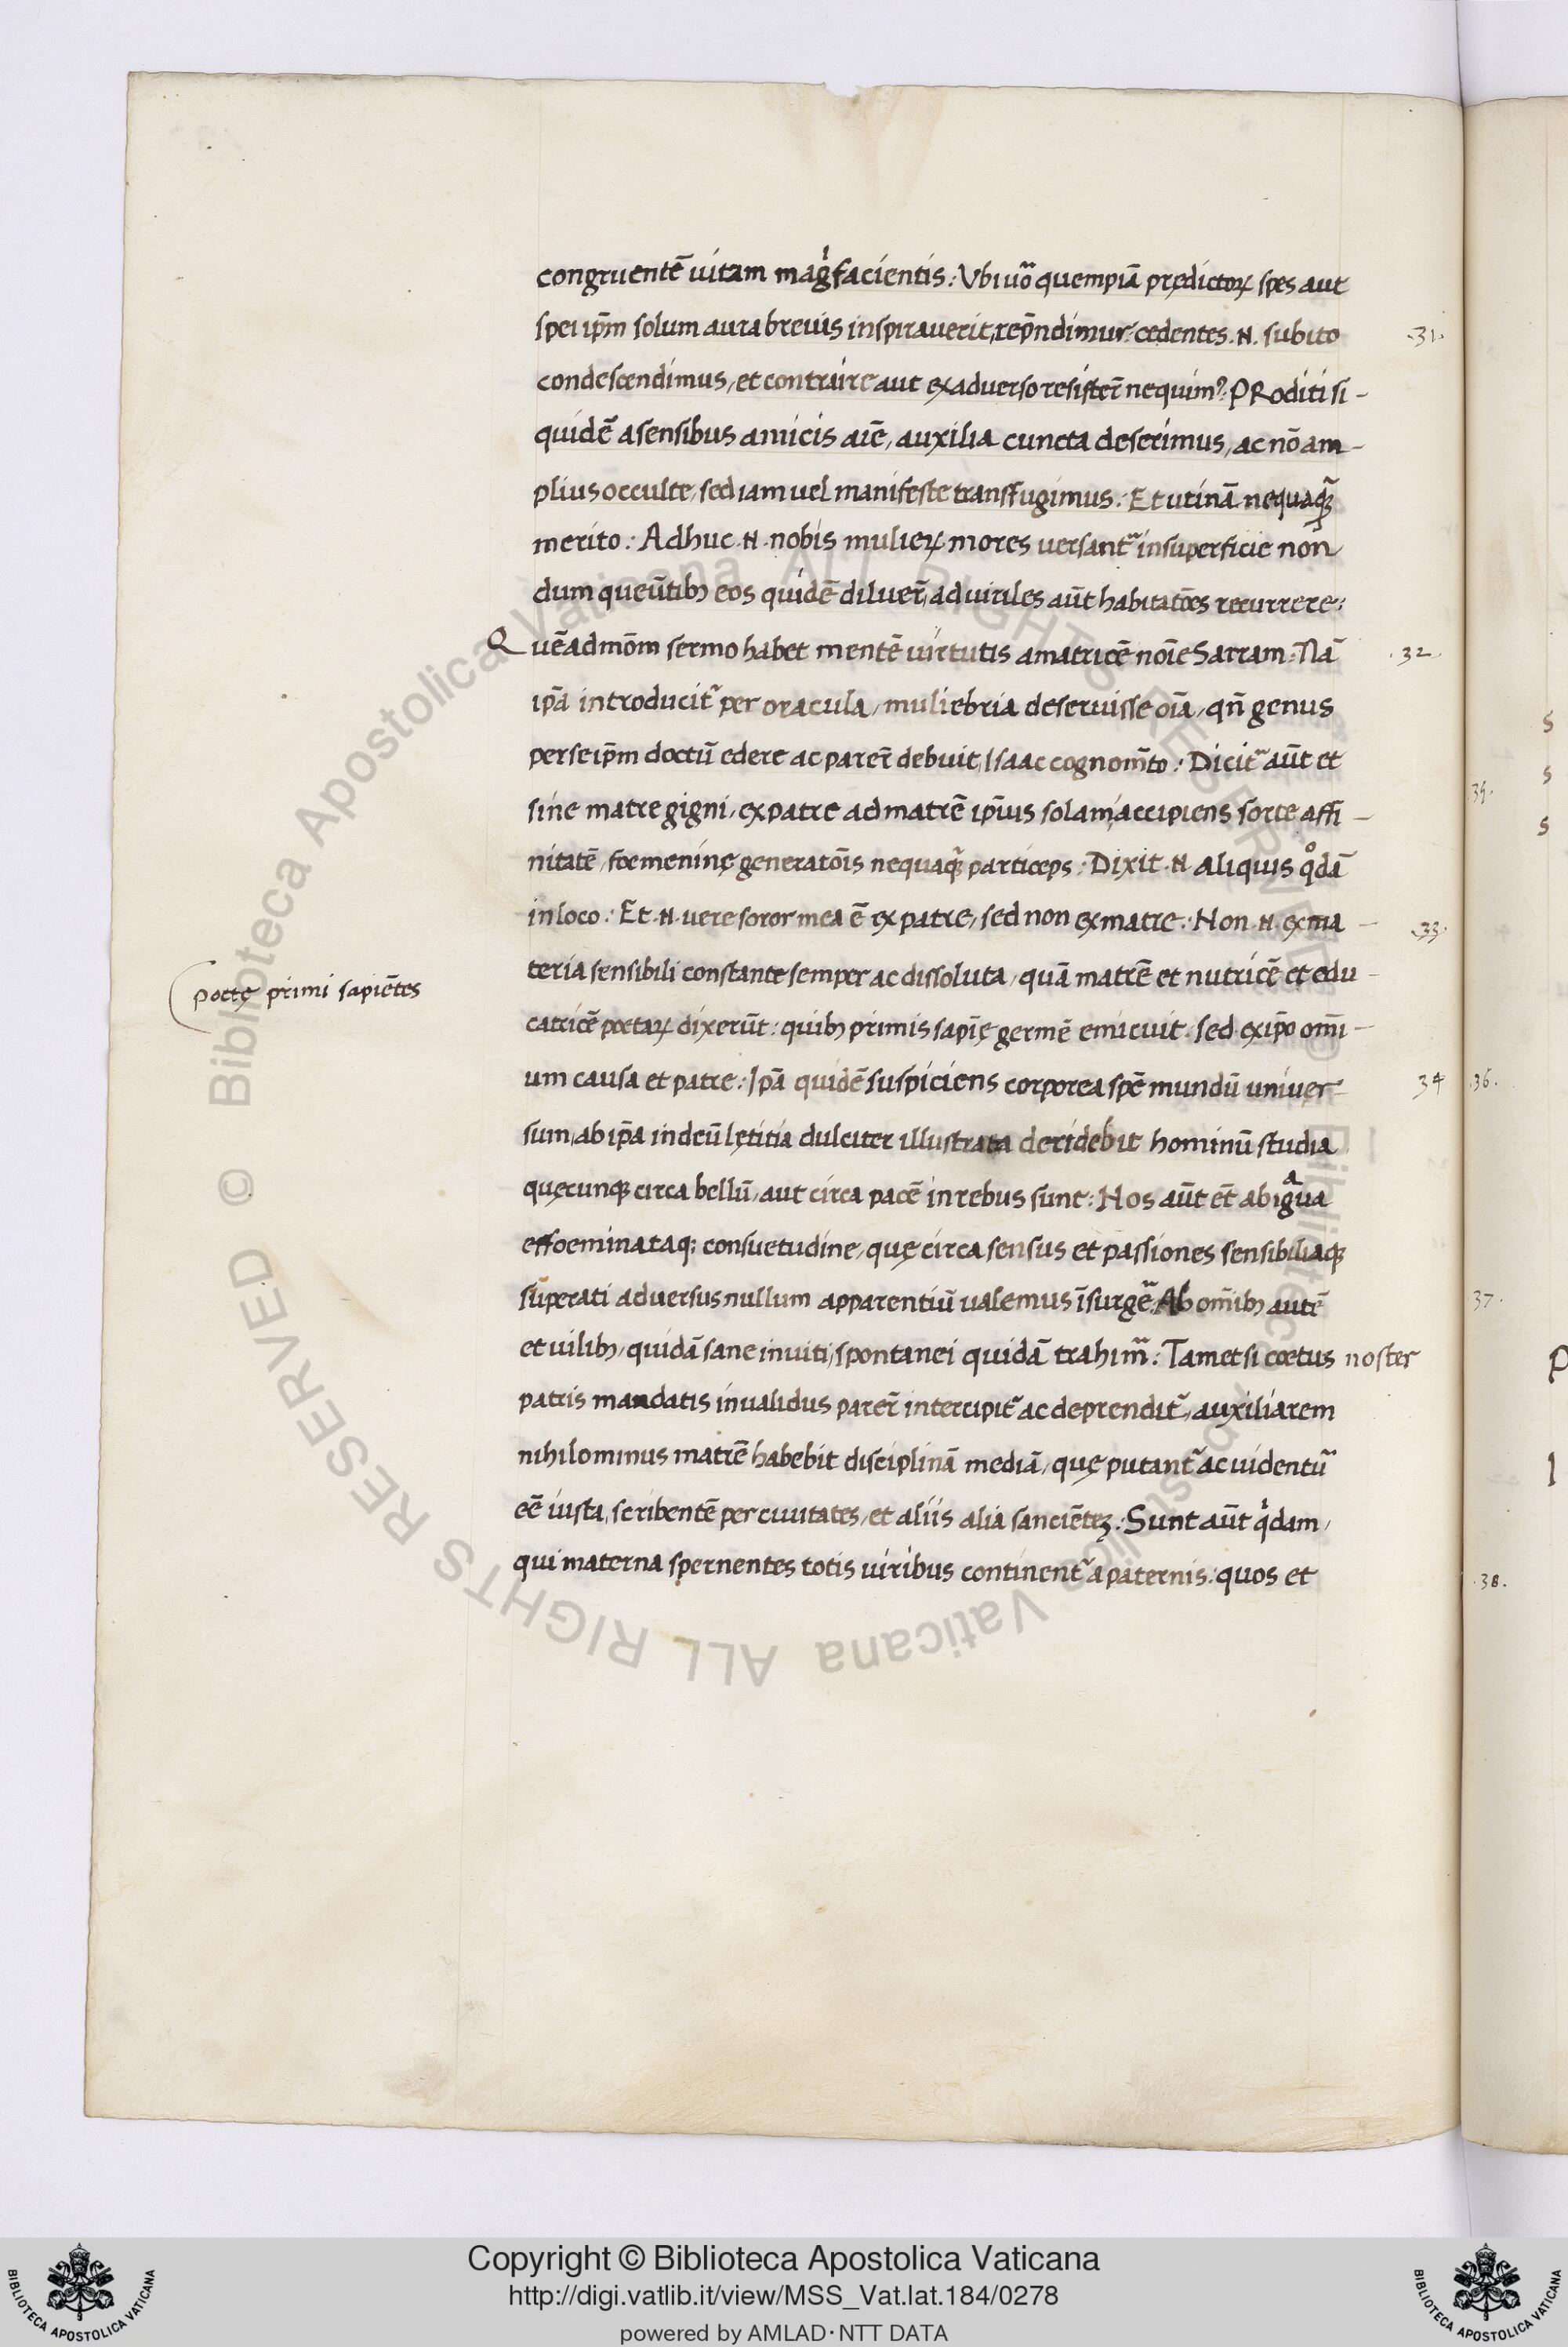 congruentē uitam magⁱfacientis: Vbi uō quempiā prędictoꝝ spes aut
spei ip̄m solum aura brevis inspirauerit, rep̄ndimur: cedentes .N. subito .31.
condescendimus, et contraire aut exadverso resister̄ nequimꝰ: PRoditi si-
quidē a sensibus amicis aīe, auxilia cuncta deserimus, ac nō am-
plius occulte, sed iam uel manifeste transfugimus: Et utinā nequaꝙ̄
merito: Adhuc .N. nobis mulieꝝ mores versant᷑ in superficie non
dum queūtibꝫ eos quidē diluer̄, ad uiriles aūt habitatōes recurrere:
Quēadmōm sermo habet mentē virtutis amatricē noīe Sarram: Nā .32.
ip̄a introducit᷑ per oracula, muliebria deseruisse oīa, qn̄ genus
per se ip̄m doctū edere ac parer̄ debuit, Isaac cognom̄to: Dicit᷑ aūt et
sine matre gigni, ex patre ad matrē ip̄ius solam, accipiens sorte affi-
nitatē, foemeninę generatōis nequaꝙ̄ particeps: Dixit .N. aliquis qͦdā
in loco: Et .N. vere soror mea ē ex patre, sed non ex matre: Non .N. ex ma- .33.
teria sensibili constante semper ac dissoluta, quā matrē et nutricē et edu-
poetę primi sapiētes
catricē poetaꝝ dixerūt: quibꝫ primis sapīę germē emicuit: sed ex ip̄o om̄i-
um causa et patre: Ip̄a quidē suspiciens corporea spē mundū univer- 34
sum, ab ip̄a in deū lętitia dulciter illustrata deridebit hominū studia
quęcunqꝫ circa bellū, aut circa pacē in rebus sunt: Nos aūt et̄ ab igᵃua
effoeminataqꝫ consuetudine, quę circa sensus et passiones sensibiliaqꝫ
superati adversus nullum apparentiū ualemus īsurge᷑: Ab om̄ibꝫ autē
et uilibꝫ, quidā sane inuiti, spontanei quidā trahim᷑: Tametsi coetus noster
patris mandatis inualidus parer̄ intercipit᷑ ac deprendit᷑, auxiliarem
nihilominus matrē habebit disciplinā mediā, quę putant᷑ ac uident᷑
eē iusta, scribentē per ciuitates, et aliis alia sanciēteꝫ: Sunt aūt qⁱdam,
qui materna spernentes totis uiribus continent᷑ a paternis: quos et
35.
.36.
37.
.38.
S
S
S
P
I
Copyright © Biblioteca Apostolica Vaticana
http://digi.vatlib.it/view/MSS_Vat.lat.184/0278
powered by AMLAD·NTT DATA
BIBLIOTECA APOSTOLICA VATICANA
BIBLIOTECA APOSTOLICA VATICANA
© Biblioteca Apostolica Vaticana ALL RIGHTS RESERVED
© Biblioteca Apostolica Vaticana ALL RIGHTS RESERVED